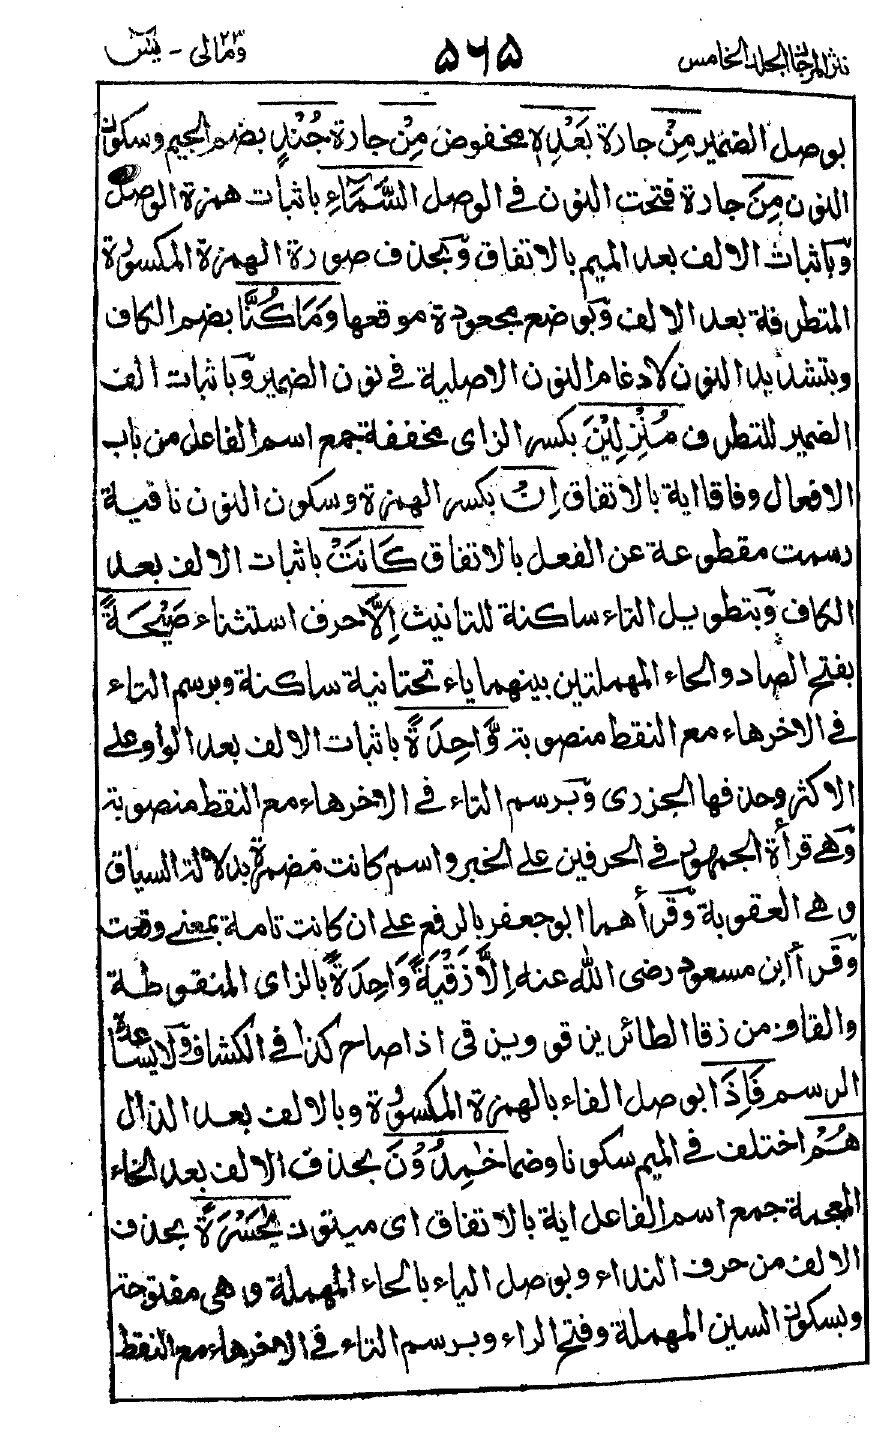 نثر المرجان الجلد الخامس ٥٦٥ ومالی ٢٣ - يٰسٓ
بوصل الضمير مِنْ جارة بَعْدِهٖ مخفوض مِنْ جارة جُنْدٍ بضم الجيم وسكون
النون مِنَ جارة فتحت النون فى الوصل السَّمَآءِ باثبات همزة الوصل
وباثبات الالف بعد الميم بالاتفاق وبحذف صورة الهمزة المكسورة
المتطرفة بعد الالف وبوضع مجعودة موقعها وَمَا كُنَّا بضم الكاف
وبتشديد النون لادغام النون الاصلية فى نون الضمير وباثبات الف
الضمير للتطرف مُنْزِلِيْنَ بكسر الزاى مخففة جمع اسم الفاعل من باب
الافعال وفاقا اية بالاتفاق اِنْ بكسر الهمزة وسكون النون نافية
رسمت مقطوعة عن الفعل بالاتفاق كَانَتْ باثبات الالف بعد
الكاف وبتطويل التاء ساكنة للتانيث اِلَّا حرف استثناء صَيْحَةً
بفتح الصاد والحاء المهملتين بينهما ياء تحتانية ساكنة وبرسم التاء
فى الاخرهاء مع النقط منصوبة وَّاحِدَةً باثبات الالف بعد الواو على
الاكثر وحذفها الجزرى وبرسم التاء فى الاخرهاء مع النقط منصوبة
وهى قرأة الجمهور فى الحرفين على الخبر واسم كانت مضمرة بدلالة السياق
وهى العقوبة وقرأهما ابوجعفر بالرفع على ان كانت تامة بمعنى وقعت
وقرأ ابن مسعود رضى الله عنه اِلَّا زَقْيَةً وَّاحِدَةً بالزاى المنقوطة
والقاف من زقا الطائر يزقو ويزقى اذا صاح كذا فى الكشاف ولا يساعده
الرسم فَاِذَا بوصل الفاء بالهمزة المكسورة وبالالف بعد الذال
هُمْ اختلف فى الميم سكونا وضما خٰمِدُوْنَ بحذف الالف بعد الخاء
المعجمة جمع اسم الفاعل اية بالاتفاق اى ميتون يٰحَسْرَةً بحذف
الالف من حرف النداء وبوصل الياء بالحاء المهملة وهى مفتوحة
وبسكون السين المهملة وفتح الراء وبرسم التاء فى الاخرهاء مع النقط